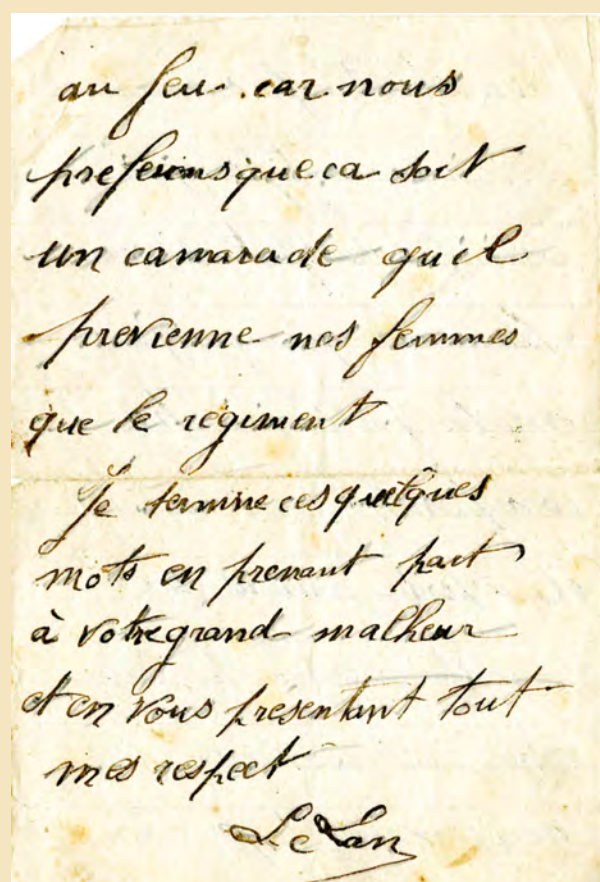 au feu. car nous
preferons que ca soit
un camarade quil
previenne nos femmes
que le regiment.
Je termine ces quelques
mots en prenant part
à votre grand malheur
et en vous présentant tout
mes respect
Le Lan